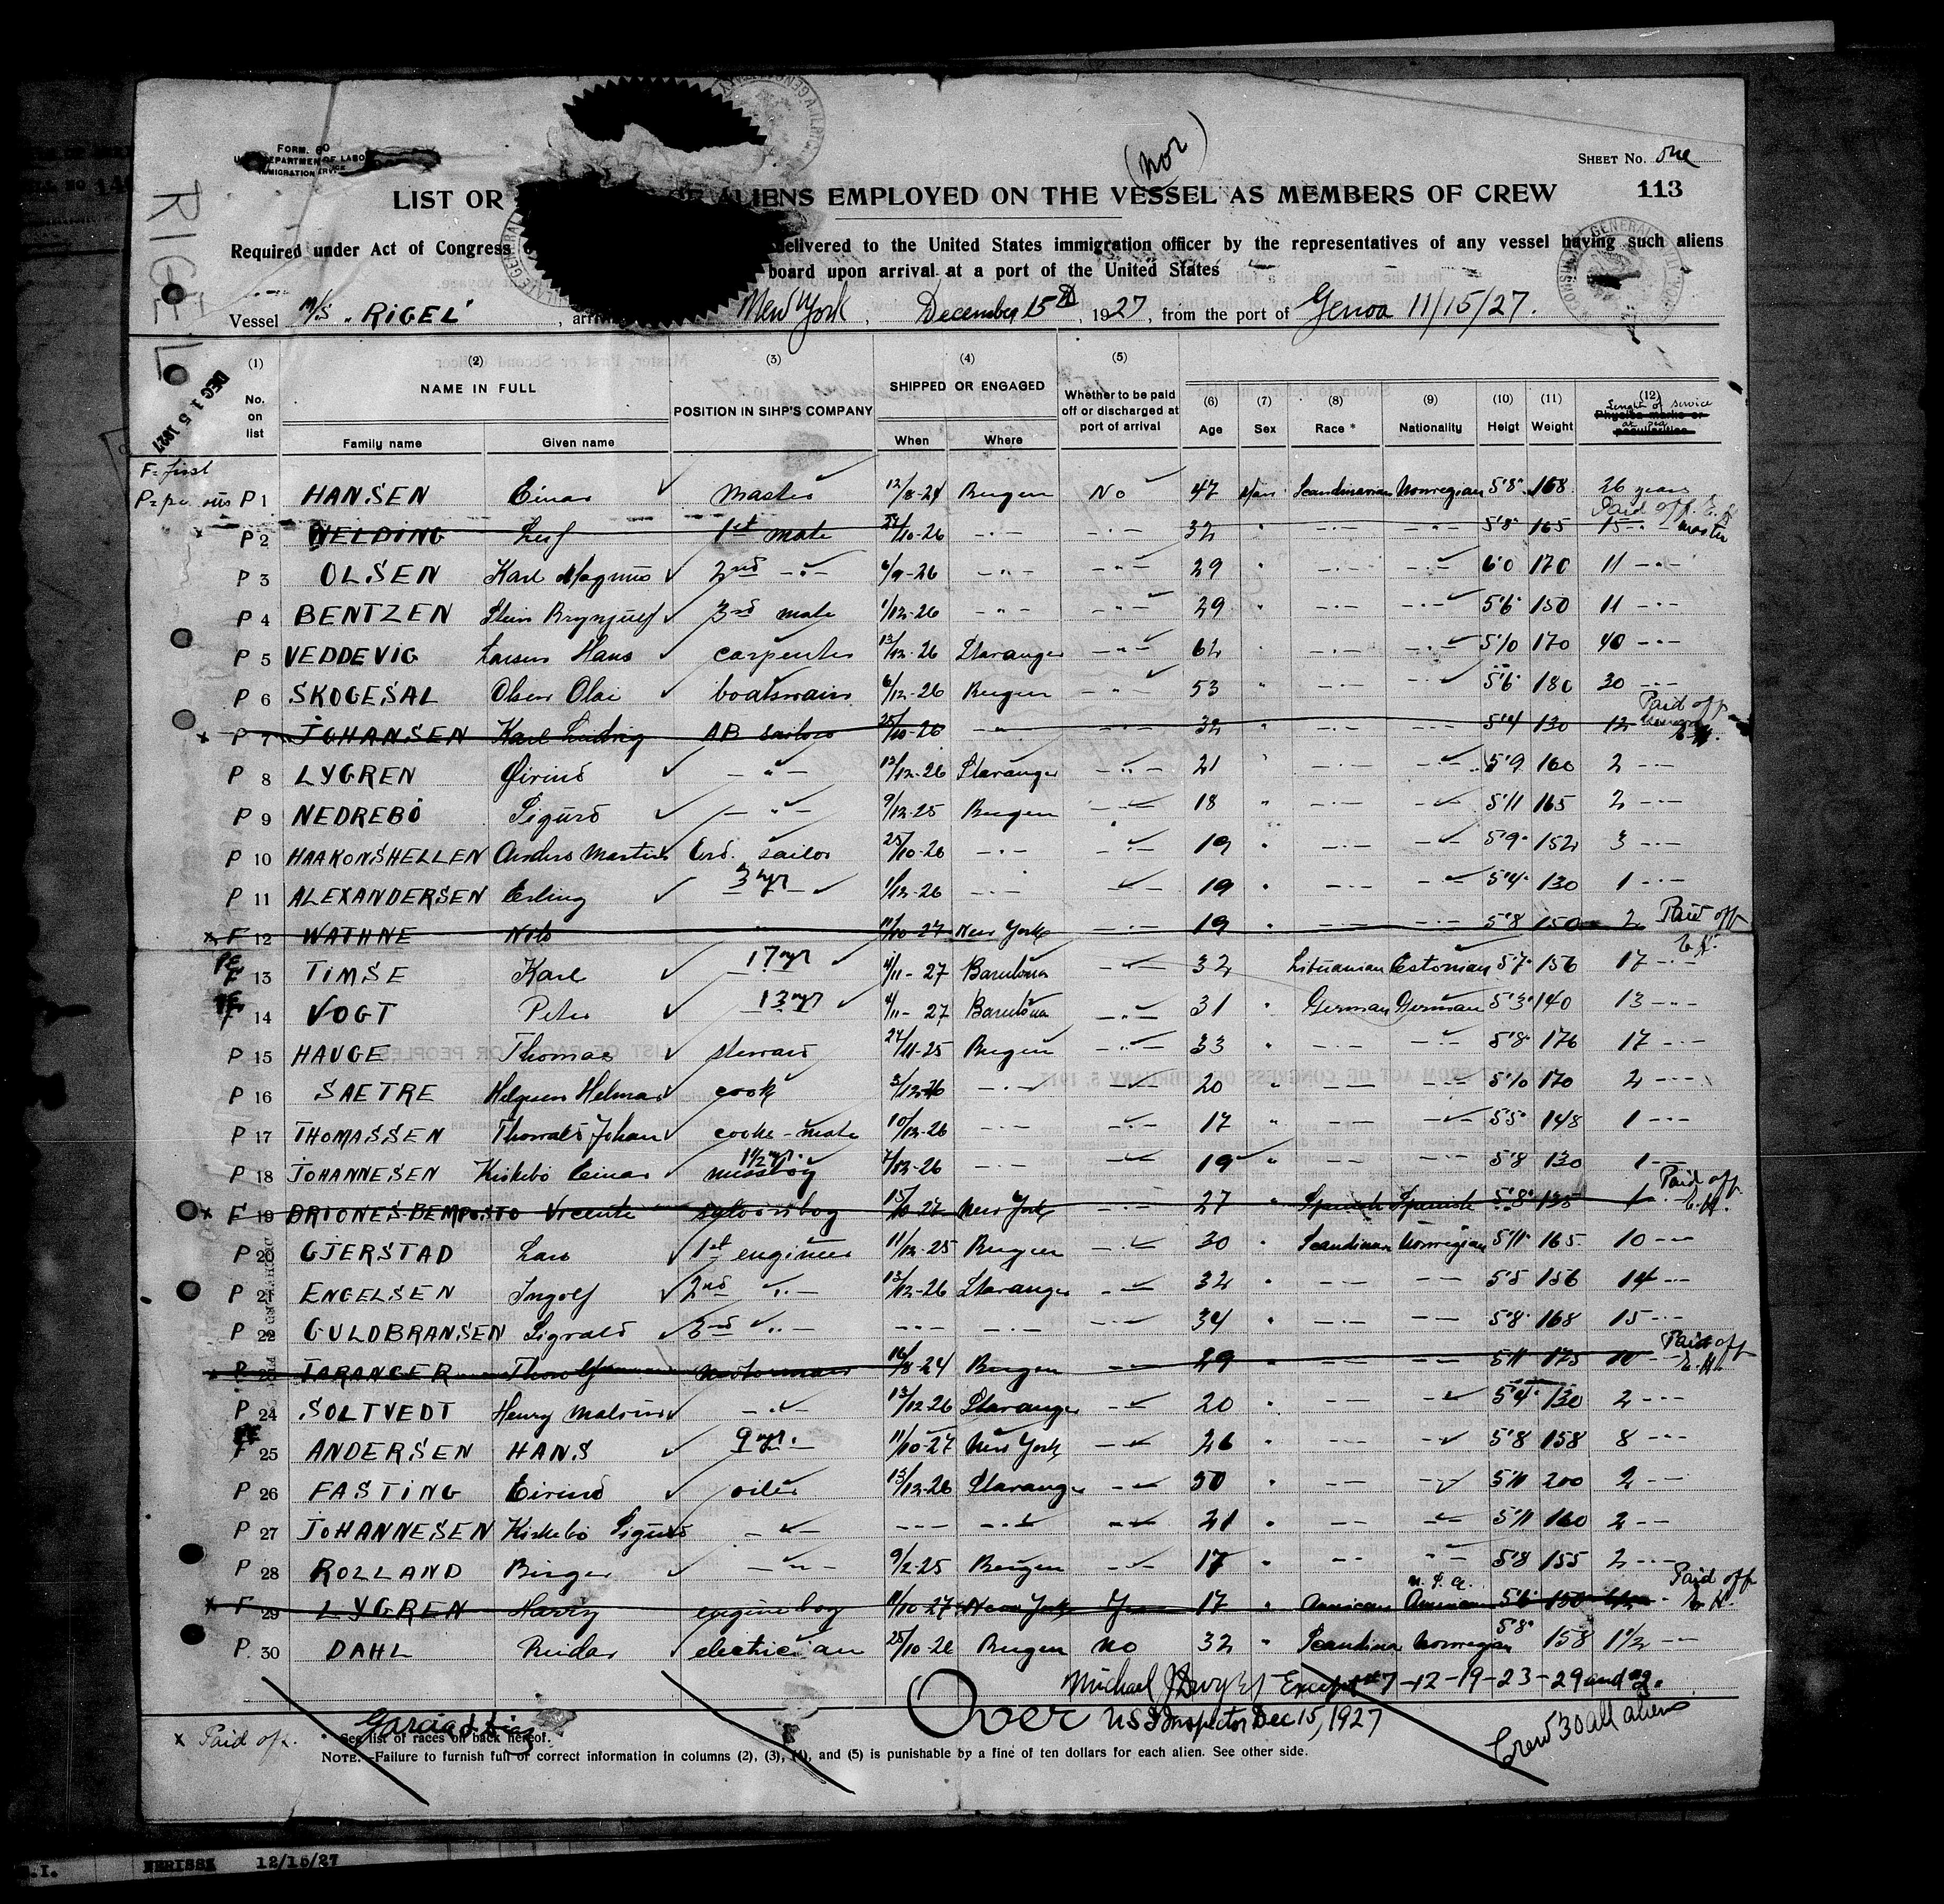 FORM. 60
SHEET No. One
(Nor)
LIST OR ALIENS EMPLOYED ON THE VESSEL AS MEMBERS OF CREW 113
Required under Act of Congress delivered to the United States immigration officer by the representatives of any vessel having such aliens
board upon arrival at a port of the United States
RIGEL
Vessel M/S "RIGEL" , New York , December 15th , 1927 , from the port of Genoa 11/15/27.
DEC 15 1927
(1) (2) (3) (4) (5) (6) (7) (8) (9) (10) (11) (12)
No. on list NAME IN FULL POSITION IN SIHP'S COMPANY SHIPPED OR ENGAGED Whether to be paid off or discharged at port of arrival Age Sex Race * Nationality Heigt Weight Length of service at sea
Family name Given name When Where
F = first
P 1 HANSEN Einar master 12/8-24 Bergen No 47 Scandinavian Norwegian 5'8" 168 26 years
P 2 WELDING Leif 1st mate 10-26 32 5'8" 165 15 Paid off. E.H. master
P 3 OLSEN Karl Magnus 2nd 6/9-26 29 6'0 170 11
P 4 BENTZEN Stein Brynjulf 3rd mate 1/12-26 29 5'6" 150 11
P 5 VEDDEVIG Larsen Hans carpenter 13/12-26 Stavanger 64 5'10 170 40
P 6 SKOGESAL Olsen Olai boatswain 6/12-26 Bergen 53 5'6" 180 30
P 7 JOHANSEN Karl Ludvig AB sailor 25/10-26 32 5'4 130 12 Paid off
P 8 LYGREN Eirind 13/12-26 Stavanger 21 5'9 160 2
P 9 NEDREBÖ Sigurd 9/12-25 Bergen 18 5'11 165 2
P 10 HAAKONSHELLEN Anders Martin Ord. sailor 25/10-26 19 5'9" 152 3
P 11 ALEXANDERSEN Erling 3 yr 1/12-26 19 5'4" 130 1
F 12 WATHNE Nils 11/10-27 New York 19 5'8 150 2 Paid off E.H.
13 TIMSE Karl 17 yr 4/11-27 Barcelona 32 Lituanian Estonian 5'7" 156 17
14 VOGT Peter 13 yr 4/11-27 Barcelona 31 German German 5'3" 140 13
P 15 HAUGE Thomas steward 24/11-25 Bergen 33 5'8" 176 17
P 16 SAETRE Helmar cook 3/12-26 20 5'10 170 2
P 17 THOMASSEN Thorvald Johan cooks-mate 10/12-26 17 5'5" 148 1
P 18 JOHANNESEN Kirkebö Einar 1 1/2 yr. messboy 7/12-26 19 5'8 130 1
F 19 BRIONES BEMPOSTO Vicente saloonsboy 15/10-27 New York 27 Spanish Spanish 5'8" 135 1 Paid off E.H.
P 20 GJERSTAD Lars 1st engineer 11/12-25 Bergen 30 Scandinav Norwegian 5'11" 165 10
P 21 ENGELSEN Ingolf 2nd 13/12-26 Stavanger 32 5'5 156 14
P 22 GULDBRANSEN Sigvald 3rd 34 5'8" 168 15
P 23 TARANGER Thorolf motorman 16/8-24 Bergen 29 5'11 175 10 Paid off E.H.
P 24 SOLTVEDT Henry 13/12-26 Stavanger 20 5'4" 130 2
25 ANDERSEN HANS 9 yr. 11/10-27 New York 26 5'8 158 8
P 26 FASTING Eivind oiler 13/12-26 Stavanger 50 5'11 200 2
P 27 JOHANNESEN Kirkebö Sigurd 21 5'11 160 2
P 28 ROLLAND Birger 9/2-25 Bergen 17 5'8 155 2
F 29 LYGREN Harry engineboy 11/10-27 New York Yes 17 American American U.S.A. 5'6" 150 Paid off E.H.
P. 30 DAHL Reidar electrician 25/10-26 Bergen No 32 Scandinav Norwegian 5'8" 158 1 1/2
Michael J Dwyer Except 7-12-19-23-29 and 2.
Over US Inspector Dec 15, 1927
Crew 30 all aliens
x Paid off.
* See list of races on back hereof.
NOTE.—Failure to furnish full or correct information in columns (2), (3), (4), and (5) is punishable by a fine of ten dollars for each alien. See other side.
12/15/27